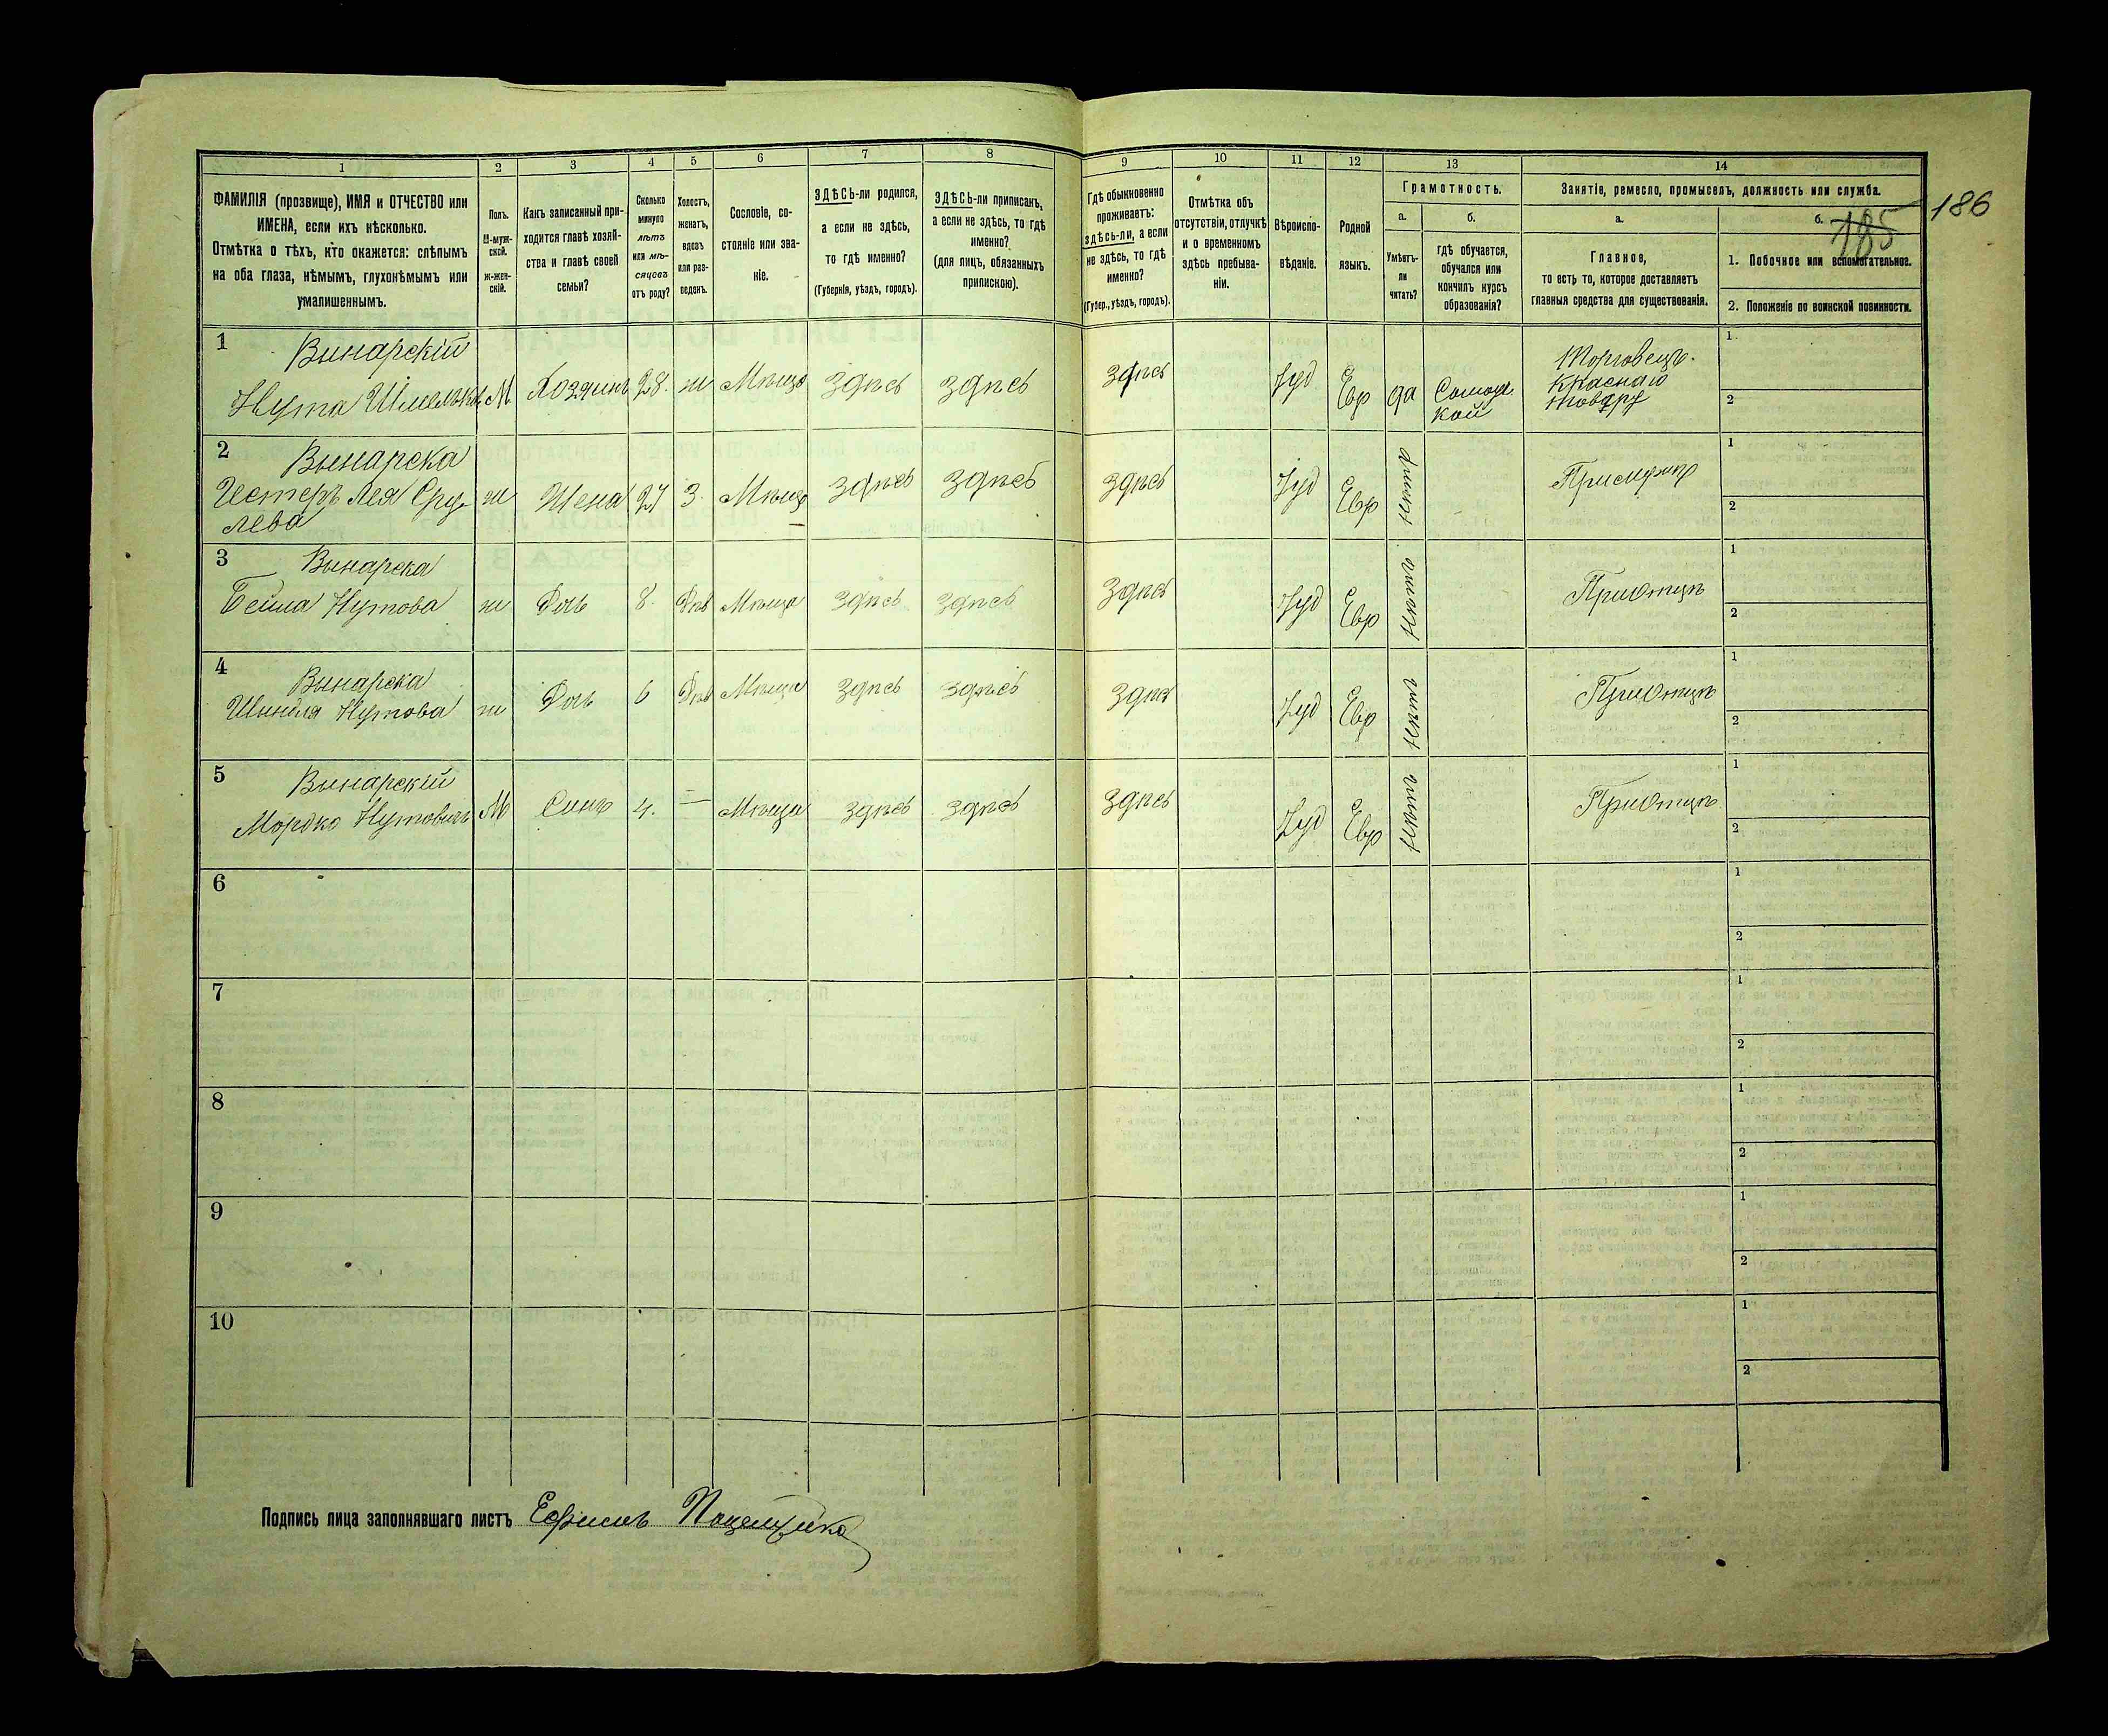 1 2 3 4 5 6 7 8 9 10 11 12 13 14
ФАМИЛІЯ (прозвище), ИМЯ и ОТЧЕСТВО или
ИМЕНА, если ихъ нѣсколько.
Отмѣтка о тѣхъ, кто окажется: слѣпымъ
на оба глаза, нѣмымъ, глухонѣмымъ или
умалишеннымъ.
Полъ.
М-муж-
ской.
ж-жен-
скій.
Какъ записанный при-
ходится главѣ хозяй-
ства и главѣ своей
семьи?
Сколько
минуло
лѣтъ
или мѣ-
сяцевъ
отъ роду?
Холостъ,
женатъ,
вдовъ
или раз-
веденъ.
Сословіе, со-
стояніе или зва-
ніе.
ЗДѢСЬ-ли родился,
а если не здѣсь,
то гдѣ именно?
(Губернія, уѣздъ, городъ).
ЗДѢСЬ-ли приписанъ,
а если не здѣсь, то гдѣ
именно?
(для лицъ, обязанныхъ
припискою).
Гдѣ обыкновенно
проживаетъ:
здѣсь-ли, а если
не здѣсь, то гдѣ
именно?
(Губер., уѣздъ, городъ).
Отмѣтка объ
отсутствіи, отлучкѣ
и о временномъ
здѣсь пребыва-
ніи.
Вѣроиспо-
вѣданіе.
Родной
языкъ.
Грамотность.
а.
Умѣетъ-
ли
читать?
б.
гдѣ обучается,
обучался или
кончилъ курсъ
образованія?
Занятіе, ремесло, промыселъ, должность или служба.
а.
Главное,
то есть то, которое доставляетъ
главныя средства для существованія.
б.
1. Побочное или вспомогательное.
2. Положеніе по воинской повинности.
185
186
1 Винарскій
Нута Шмельковъ М Хозяинъ 28. ж Мѣща здѣсь здѣсь здѣсь Іуд Евр да
Торговецъ
Краснаго
товару
1
2
2 Винарска
Иестеръ Лея Сру
лева ж Жена 27 З. Мѣща здѣсь здѣсь здѣсь Іуд Евр
1
2
3 Винарска
Бейла Нутова ж Дочь 8. Дѣв Мѣща здѣсь здѣсь здѣсь Іуд Евр При отцѣ
1
2
4 Винарска
Нутова ж Дочь 6 Дѣв Мѣща здѣсь здѣсь здѣсь Іуд Евр При отцѣ
1
2
5 Винарскій
Мордко Нутовичъ М Синъ 4. — Мѣща здѣсь здѣсь здѣсь Іуд Евр При отцѣ
1
2
6
1
2
7
1
2
8
1
2
9
1
2
10
1
2
Подпись лица заполнявшаго листъ Ефимъ